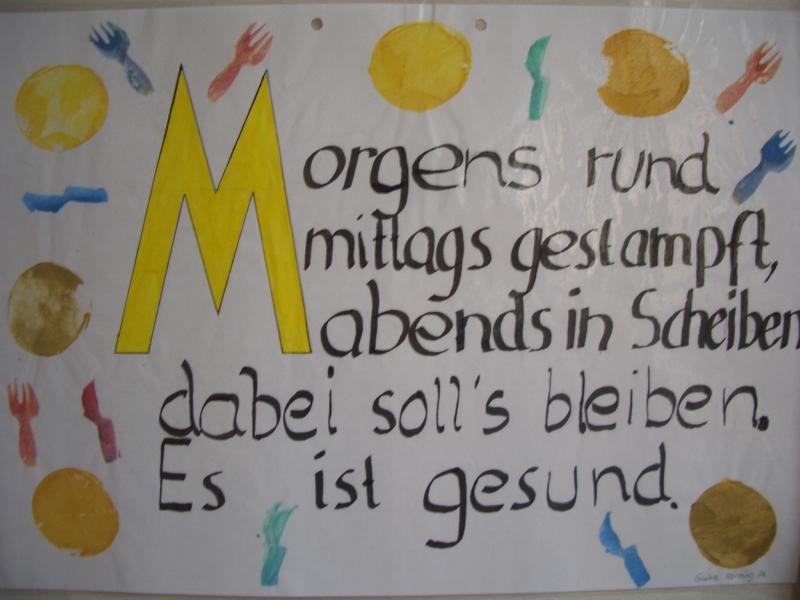 Morgens rund
mittags gestampft,
abends in Scheiben
dabei soll's bleiben.
Es ist gesund.